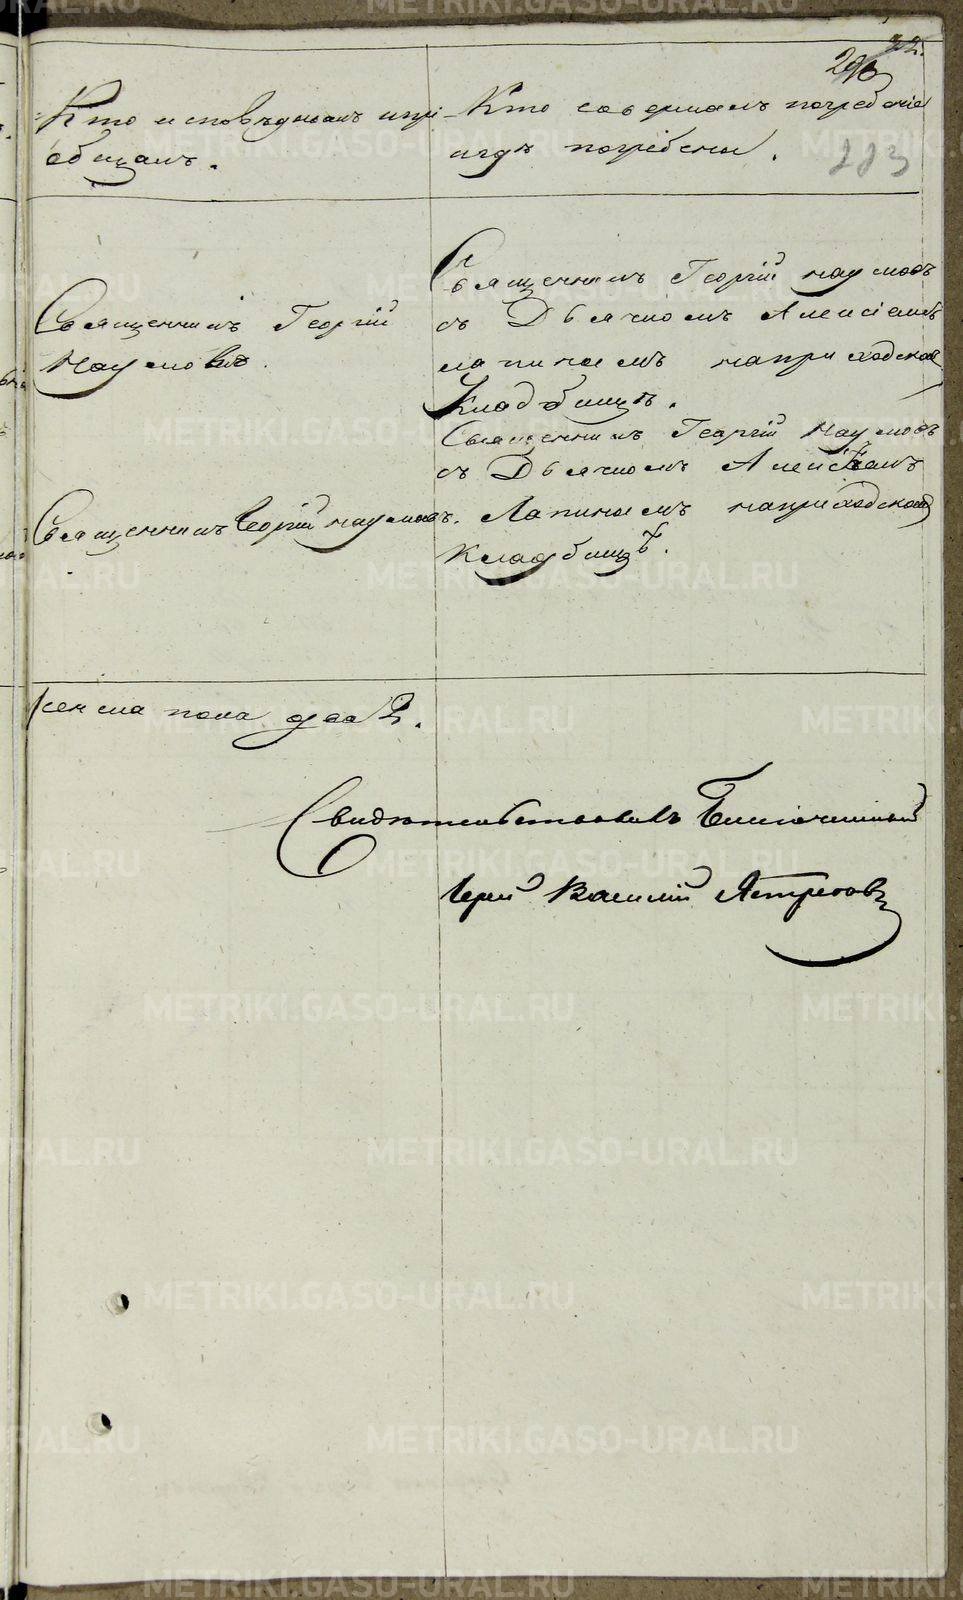 32.
293
Кто исповѣдывалъ и прі-
общалъ.
Кто совершалъ погребеніе
и гдѣ погребены.
223
Священникъ Георгій
Наумовъ.
Священникъ Георгій Наумовъ
съ Дьячкомъ Алексіемъ
Лапинымъ на приходскомъ
Кладбищѣ.
Священникъ Георгій Наумовъ.
Священникъ Георгій Наумовъ
съ Дьячкомъ Алексѣемъ
Лапинымъ на приходскомъ
Кладбищѣ.
женска пола два 2.
Свидѣтельствовалъ Благочинный
Іерей Василій Ястребовъ
METRIKI.GASO-URAL.RU